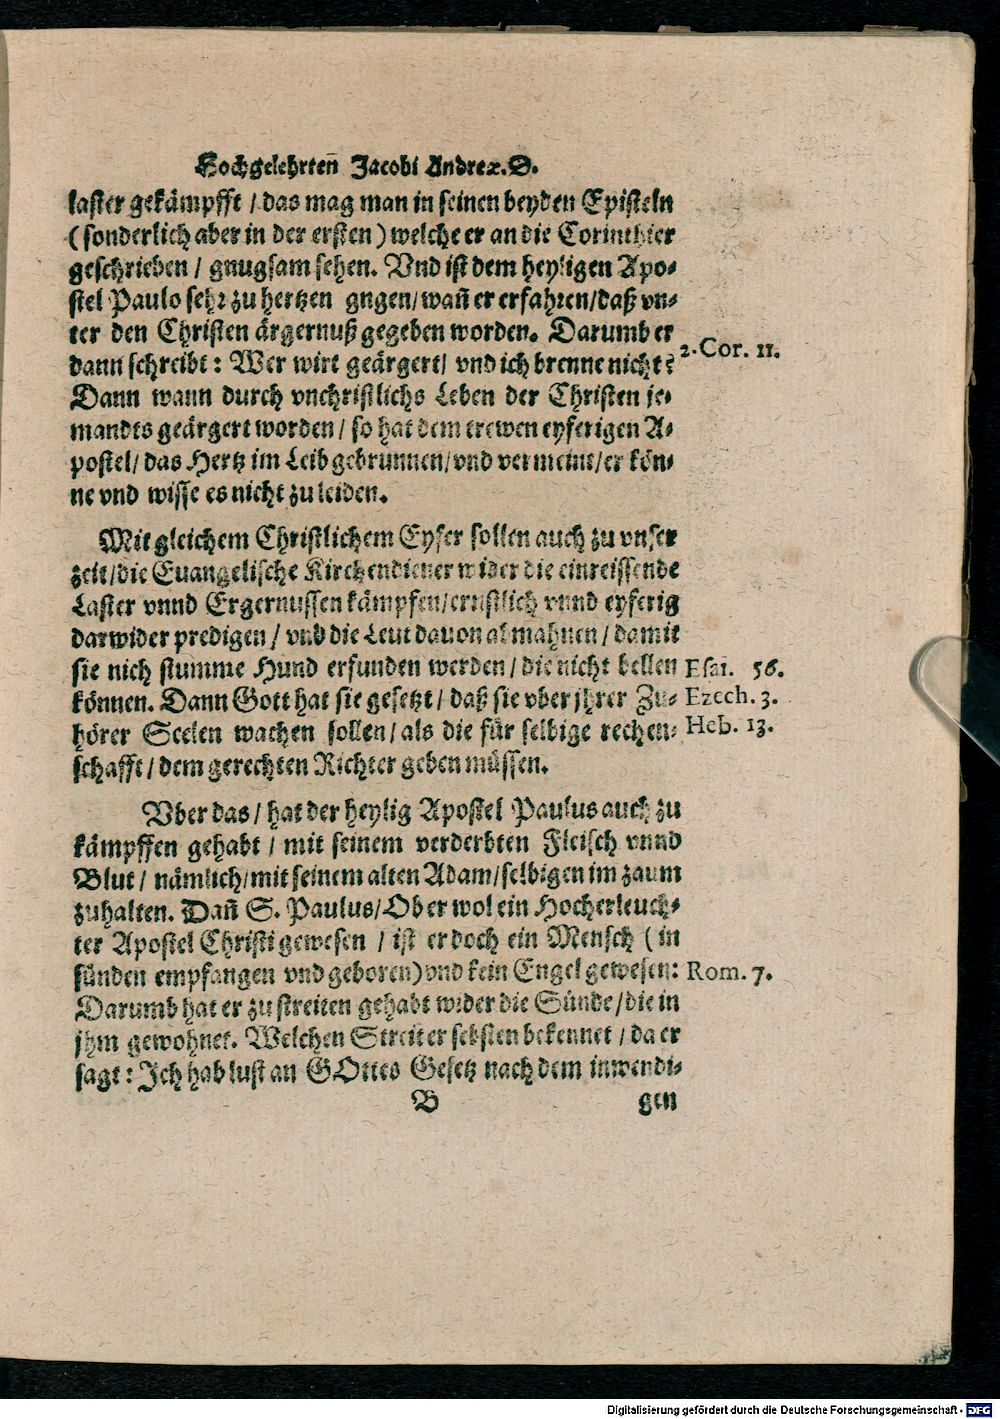 Hochgelehrten̄ Jacobi Andreæ. D.
laster gekämpfft / das mag man in seinen beyden Episteln
( sonderlich aber in der ersten ) welche er an die Corinthier
geschrieben / gnugsam sehen. Vnd ist dem heyligen Apo-
stel Paulo sehr zu hertzen gngen / wan̄ er erfahren / daß vn-
ter den Christen ärgernuß gegeben worden. Darumb er
dann schreibt : Wer wirt geärgert / vnd ich brenne nicht?
2. Cor. 11.
Dann wann durch vnchristlichs Leben der Christen je-
mandts geärgert worden / so hat dem trewen eyferigen A-
postel / das Hertz im Leib gebrunnen / vnd vermeint / er kön-
ne vnd wisse es nicht zu leiden.
Mit gleichem Christlichem Eyfer sollen auch zu vnser
zeit / die Euangelische Kirchendiener wider die einreissende
Laster vnnd Ergernussen kämpfen / ernstlich vnnd eyferig
darwider predigen / vnd die Leut dauon abmahnen / damit
sie nich stumme Hund erfunden werden / die nicht bellen
Esai. 56.
können. Dann Gott hat sie gesetzt / daß sie vber jhrer Zu-
Ezech. 3.
hörer Seelen wachen sollen / als die für selbige rechen-
Heb. 13.
schafft / dem gerechten Richter geben müssen.
Vber das / hat der heylig Apostel Paulus auch zu
kämpffen gehabt / mit seinem verderbten Fleisch vnnd
Blut / nämlich / mit seinem alten Adam / selbigen im zaum
zuhalten. Dan̄ S. Paulus / Ober wol ein Hocherleuch-
ter Apostel Christi gewesen / ist er doch ein Mensch ( in
sünden empfangen vnd geboren ) vnd kein Engel gewesen:
Rom. 7.
Darumb hat er zu streiten gehabt wider die Sünde / die in
jhm gewohnet. Welchen Streit er selbsten bekennet / da er
sagt : Ich hab lust an GOttes Gesetz nach dem inwendi-
B
gen
Digitalisierung gefördert durch die Deutsche Forschungsgemeinschaft - DFG